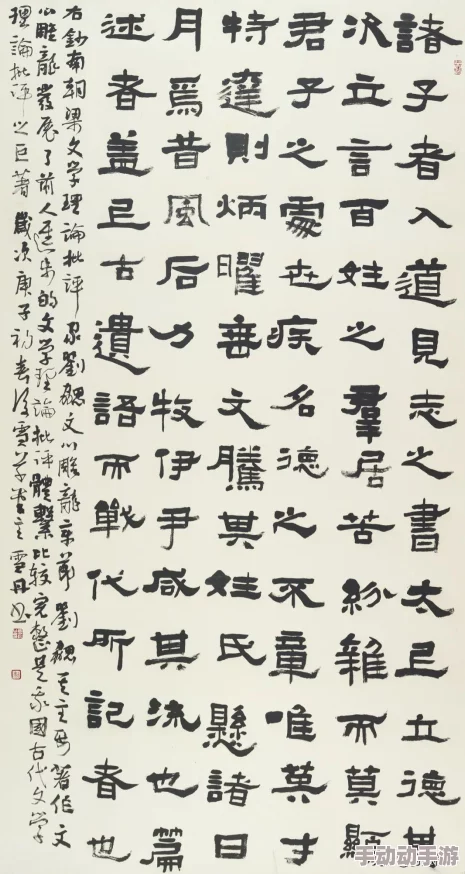 諸子者入道見志之書太上立德其
次立言百姓之羣居苦紛雜而莫顯
君子之處世疾名德之不章唯英才
特達則炳曜垂文騰其姓氏懸諸日
月焉昔風后力牧伊尹咸其流也篇
述者蓋上古遺語而戰代所記者也
右鈔南朝梁文学理論批評家劉勰文心雕龍章節劉勰其主要著作文
心雕龍發展了前人進步的文学理論批評體繫比較完整是我國古代文学
理論批評之巨著歲次庚子初春 雪草堂主雪丹書
手动动手游